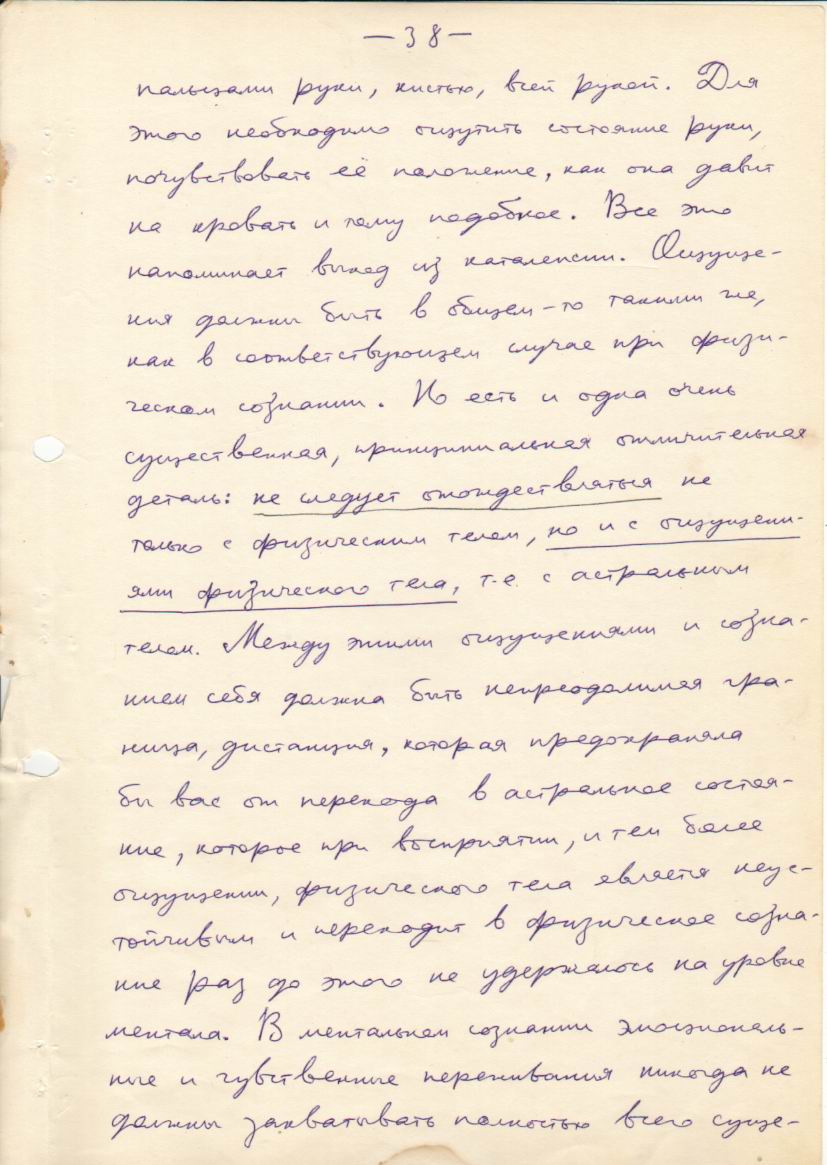 — 38 —
пальцами руки, кистью, всей рукой. Для
этого необходимо ощутить состояние руки,
почувствовать её положение, как она давит
на кровать и тому подобное. Все это
напоминает выход из каталепсии. Ощуще-
ния должны быть в общем-то такими же,
как в соответствующем случае при физи-
ческом сознании. Но есть и одна очень
существенная, принципиальная отличительная
деталь: не следует отождествляться не
только с физическим телом, но и с ощущени-
ями физического тела, т.е. с астральным
телом. Между этими ощущениями и созна-
нием себя должна быть непреодолимая гра-
ница, дистанция, которая предохраняла
бы вас от перехода в астральное состоя-
ние, которое при восприятии, и тем более
ощущении, физического тела является неус-
тойчивым и переходит в физическое созна-
ние раз до этого не удержалось на уровне
ментала. В ментальном сознании эмоциональ-
ные и чувственные переживания никогда не
должны захватывать полностью всего суще-